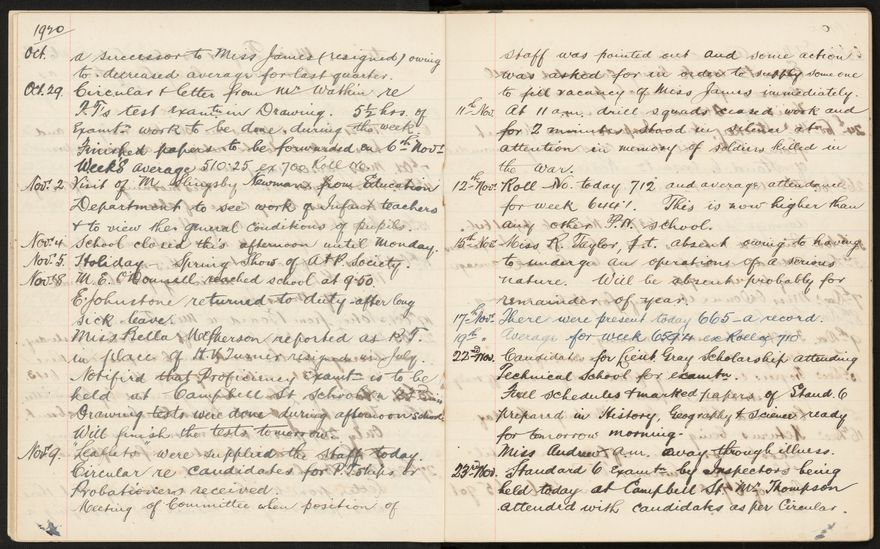 1920
Oct. a successor to Miss James (resigned) owing
to decreased average for last quarter.
Oct. 29 Circular & letter from Mr Watkin re
P.T's test examtn in Drawing. 5½ hrs. of
Examtn work to be done during the week.
Finished papers to be forwarded on 6th Novr
Week's average 510.25 ex 700 Roll no.
Nov. 2 Visit of M. Slingsby Newman from Education
Department to see work of Infant teachers
& to view the general conditions of pupils.
Nov. 4 School closed this afternoon until Monday.
Nov. 5 Holiday Spring Show of A & P. Society.
Nov. 8 M. E. O'Donnell reached school at 9.50.
E. Johnstone returned to duty after long
sick leave.
Miss Bella McPherson reported as R.T.
in place of H. Turner resigned in July.
Notified that Proficiency Examtn is to be
held at Campbell St School on
Drawing tests were done during afternoon
Will finish the tests tomorrow.
Nov. 9 were supplied the staff today.
Circular re candidates for P.T'ships or
Probationers received.
Meeting of Committee when position of
staff was pointed out and some action
was asked for in order to supply some one
to fill vacancy of Miss James immediately.
11th Nov. At 11 a.m. drill squads ceased work and
for 2 minutes stood in silence at
attention in memory of soldiers killed in
the war.
12th Nov. Roll No. today 712 and average attendance
for week 644.1. This is now higher than
any other P.N. school.
15th Nov Miss R. Taylor, f.t. absent owing to having
to undergo an operation of a serious
nature. Will be absent probably for
remainder of year.
17th Nov. There were present today 665 - a record.
19th " Average for week 659.4 ex Roll of 710
22nd Nov. Candidates for Lieut. Gray Scholarship attending
Technical School for examtn.
Full schedules & marked papers of Stand. 6
prepared in History, Geography & Science ready
for tomorrow morning.
Miss Andrew a.m. away through illness.
23rd Nov. Standard 6 Examtn by Inspectors being
held today at Campbell St. Mr Thompson
attended with candidates as per Circular.